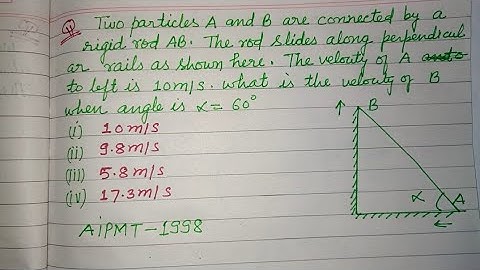 Q Two particles A and B are connected by a
rigid rod AB. The rod slides along perpendicul
ar rails as shown here. The velocity of A
to left is 10m/s. what is the velocity of B
when angle is α = 60°
(i) 10m/s
(ii) 9.8m/s
(iii) 5.8m/s
(iv) 17.3m/s
AiPMT-1998
B
α A